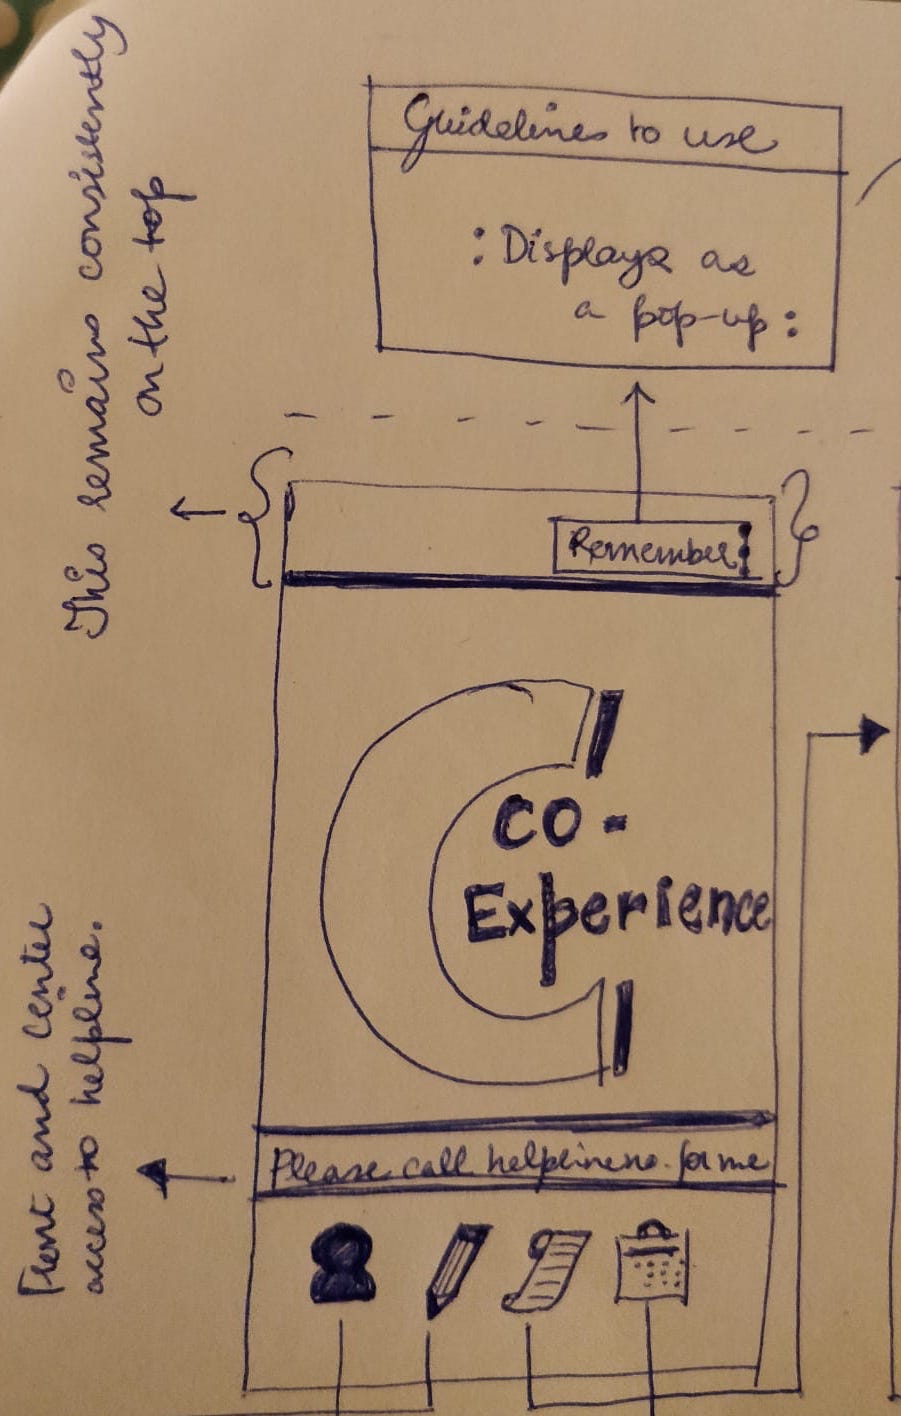 This remains consistently
on the top
Guidelines to use
: Displays as
a pop-up :
Remember!
CO -
Experience
Front and center
access to helpline.
Please call helpline no. for me